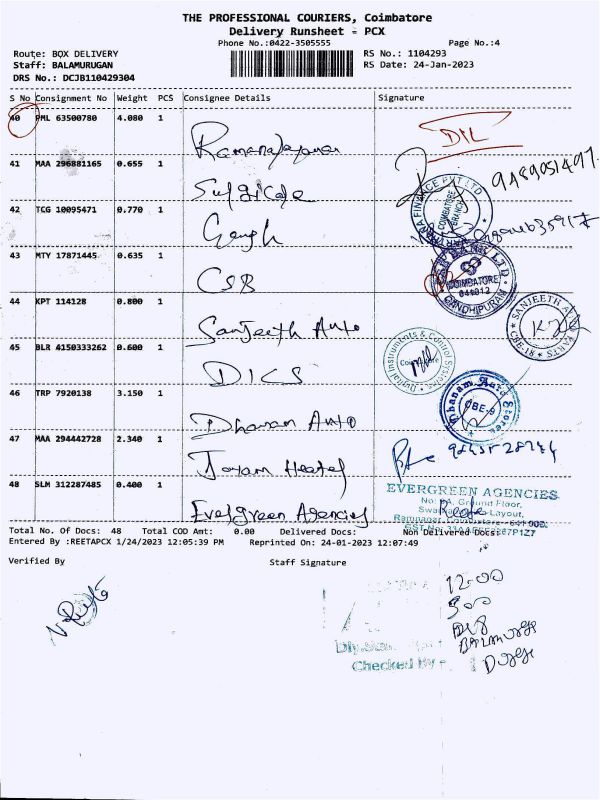 THE PROFESSIONAL COURIERS, Coimbatore
Delivery Runsheet - PCX
Phone No.:0422-3505555 Page No.:4
Route: BOX DELIVERY RS No.: 1104293
Staff: BALAMURUGAN RS Date: 24-Jan-2023
DRS No.: DCJB110429304
S No Consignment No Weight PCS Consignee Details Signature
40 PML 63500780 4.080 1
DIL
41 MAA 296881165 0.655 1
Surgicare
42 TCG 10095471 0.770 1
COIMBATORE BRANCH
43 MTY 17871445 0.635 1
CSB
COIMBATORE
641012
GANDHIPURAM
44 KPT 114128 0.800 1
Sanjeeth Auto
SANJEETH AUTO PARTS
CBE-18
45 BLR 4150333262 0.600 1
DICS
Digital Instruments & Control Systems
Coimbatore
46 TRP 7920138 3.150 1
Dhanam Auto
Dhanam Auto Stores
CBE-9
47 MAA 294442728 2.340 1
48 SLM 312287485 0.400 1
Evergreen Agencies
EVERGREEN AGENCIES
Ground Floor,
Layout,
Ramnagar, Coimbatore - 641 009.
Total No. Of Docs: 48 Total COD Amt: 0.00 Delivered Docs: Non Delivered Docs:
Entered By :REETAPCX 1/24/2023 12:05:39 PM Reprinted On: 24-01-2023 12:07:49
Verified By Staff Signature
12:00
BALAMURUGAN
Checked By